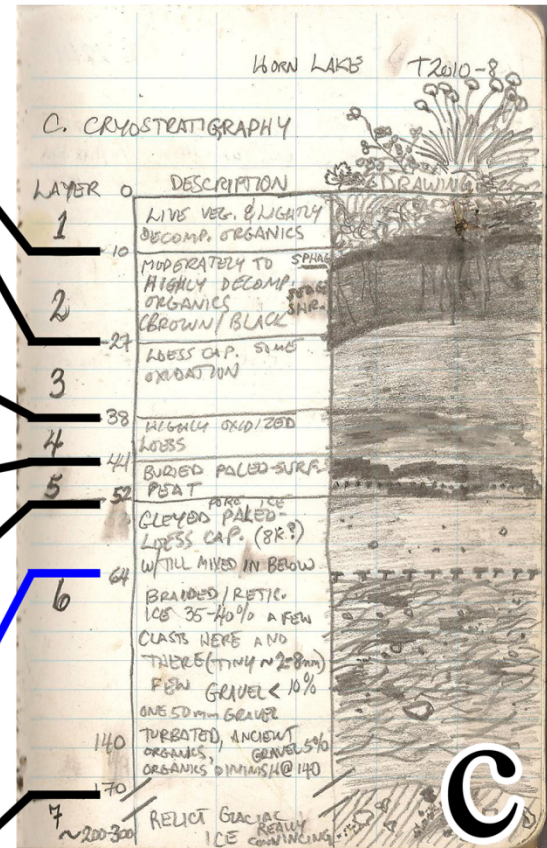 HORN LAKE T2010-8
C. CRYOSTRATIGRAPHY
LAYER 0 DESCRIPTION DRAWING
1
LIVE VEG. & LIGHTLY
DECOMP. ORGANICS
10
2
MODERATELY TO SPHAG
HIGHLY DECOMP.
ORGANICS SEDGE
(BROWN/BLACK SHR.
27
3
LOESS CAP. SOME
OXIDATION
38
4
HIGHLY OXIDIZED
LOESS
44
5
BURIED PALEO-SURF.
PEAT
52
PORE ICE
6
GLEYED PALEO-
LOESS CAP. (8K?)
W/TILL MIXED IN BELOW
64
BRAIDED/RETIC.
ICE 35-40% A FEW
CLASTS HERE AND
THERE (TINY ~2-8mm)
FEW GRAVEL < 10%
ONE 50mm GRAVEL
TURBATED, ANCIENT
140
ORGANICS, GRAVEL 5%
ORGANICS DIMINISH @ 140
170
7
~200-300
RELICT GLACIAL
ICE REALLY
CONVINCING
C